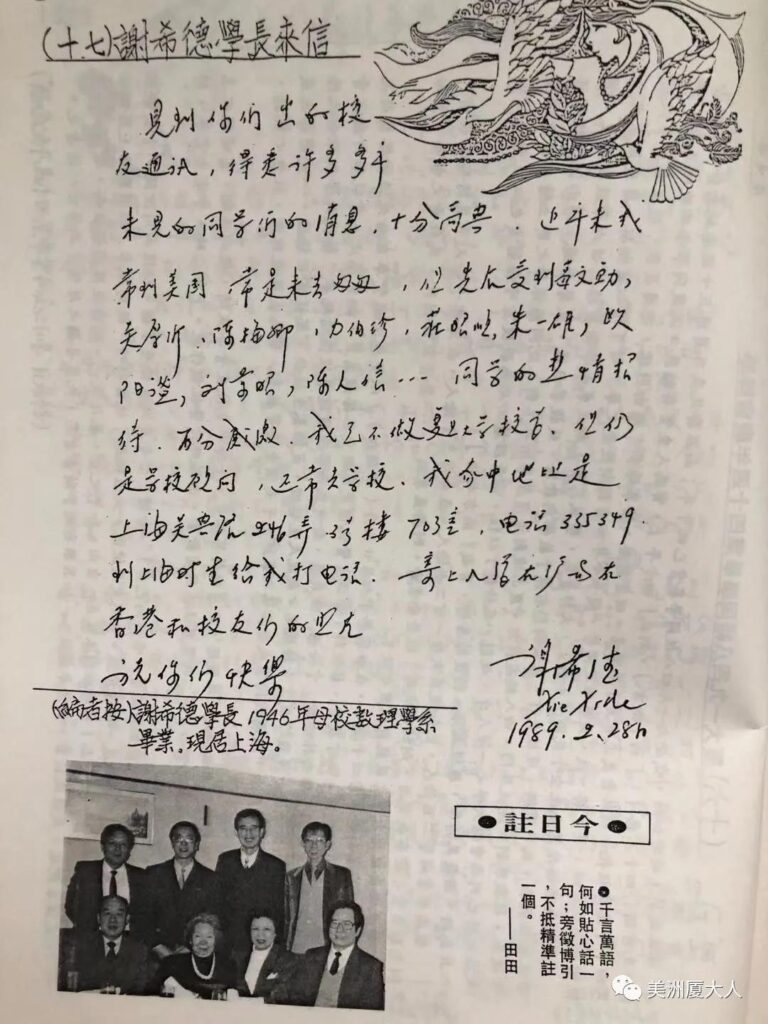 (十七)謝希德學長來信
見到你们出的校
友通讯，得悉许多多年
未见的同学们的消息，十分高兴．近年来我
常到美国 常是来去匆匆，但先后受到
陈梅卿，力伯珍，庄昭顺，朱一雄，欧
阳谧，刘景昭，陈人信… 同学的热情招
待．百分感激．我已不做复旦大学校长．但仍
是学校顾问，还常去学校．我家中地址是
上海吴兴路246弄 3号楼 703室，电话335349.
到上海时望给我打电话．寄上
香港和校友们的照片
祝你们快乐
谢希德
Xie Xide
1989.2.28日
(編者按)謝希德學長1946年母校数理學系
畢業。現居上海。
●註日今●
●千言萬語，
何如貼心話一
句；旁徵博引
，不抵精準註
一個。
——田田
美洲厦大人